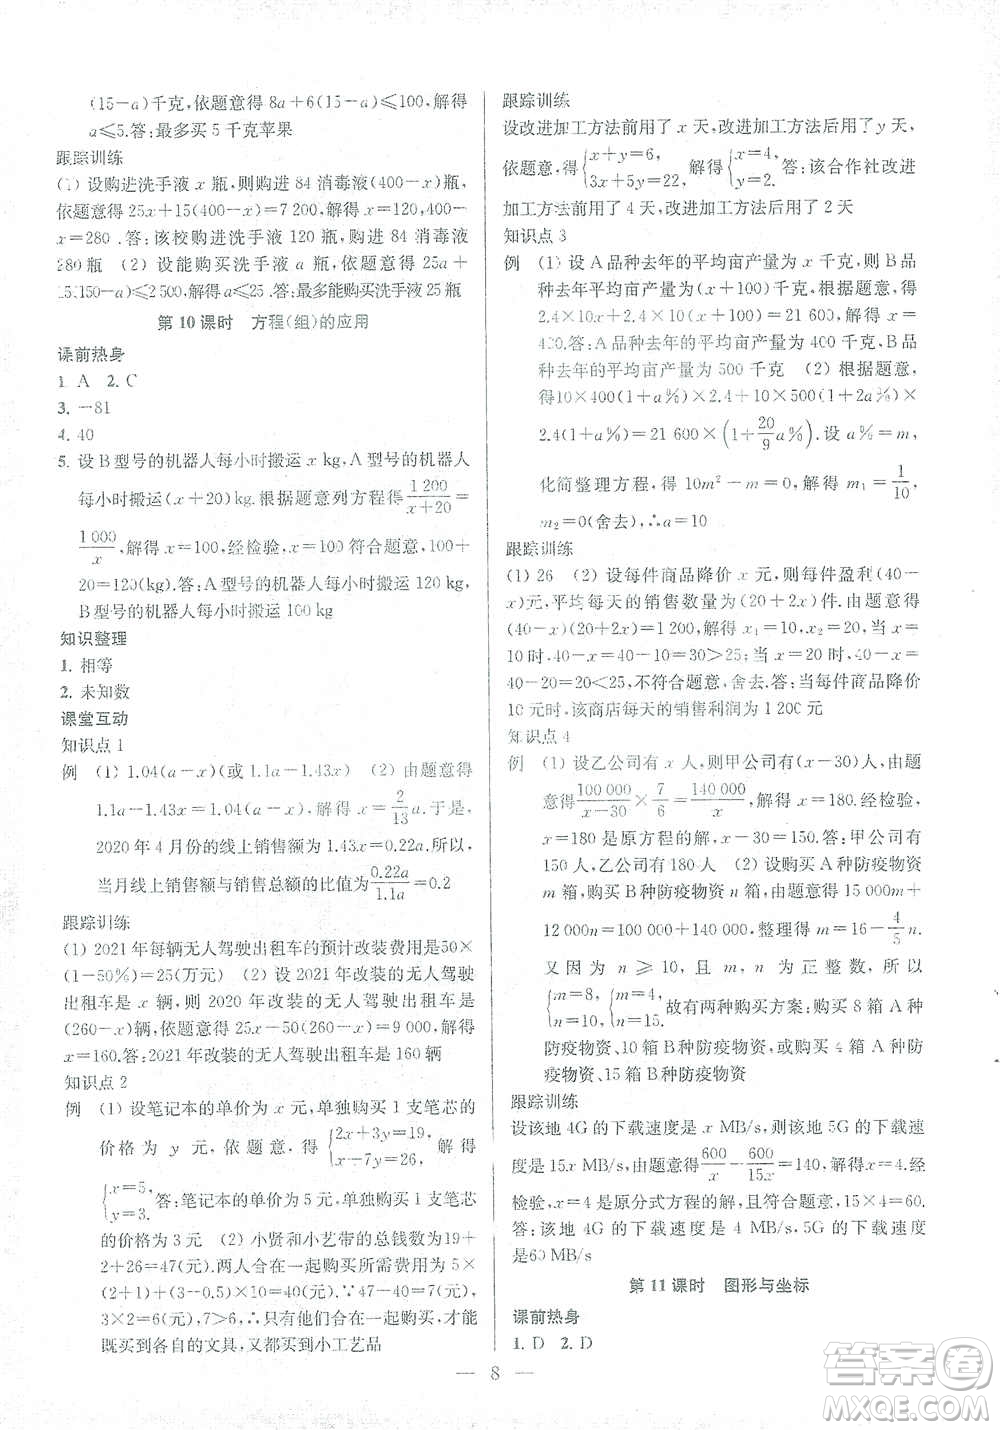 (15－a)千克,依题意得 8a＋6(15－a)≤100,解得
a≤5.答:最多买 5 千克苹果
跟踪训练
(1) 设购进洗手液 x 瓶,则购进 84 消毒液(400－x)瓶,
依题意得 25x＋15(400－x)＝7 200,解得 x＝120,400－
x＝280 .答:该校购进洗手液 120 瓶,购进 84 消毒液
280 瓶 (2) 设能购买洗手液 a 瓶,依题意,得 25a＋
15(150－a)≤2 500,解得 a≤25.答:最多能购买洗手液 25 瓶
第 10 课时 方程(组)的应用
课前热身
1. A 2. C
3. －81
4. 40
5. 设 B 型号的机器人每小时搬运 x kg,A 型号的机器人
每小时搬运(x＋20)kg.根据题意列方程得 1 200/(x＋20)＝
1 000/x,解得 x＝100,经检验,x＝100 符合题意,100＋
20＝120(kg).答:A 型号的机器人每小时搬运 120 kg,
B 型号的机器人每小时搬运 100 kg
知识整理
1. 相等
2. 未知数
课堂互动
知识点 1
例 (1) 1.04(a－x)(或 1.1a－1.43x) (2) 由题意得
1.1a－1.43x＝1.04(a－x),解得 x＝2/13 a.于是,
2020 年 4 月份的线上销售额为 1.43x＝0.22a.所以,
当月线上销售额与销售总额的比值为 0.22a/1.1a＝0.2
跟踪训练
(1) 2021 年每辆无人驾驶出租车的预计改装费用是 50×
(1－50%)＝25(万元) (2) 设 2021 年改装的无人驾驶
出租车是 x 辆,则 2020 年改装的无人驾驶出租车是
(260－x)辆,依题意得 25x－50(260－x)＝9 000,解得
x＝160.答:2021 年改装的无人驾驶出租车是 160 辆
知识点 2
例 (1) 设笔记本的单价为 x 元,单独购买 1 支笔芯的
价格为 y 元,依题意,得 {2x＋3y＝19, x－7y＝26, 解得
{x＝5, y＝3. 答:笔记本的单价为 5 元,单独购买 1 支笔芯
的价格为 3 元 (2) 小贤和小艺带的总钱数为 19＋
2＋26＝47(元).两人合在一起购买所需费用为 5×
(2＋1)＋(3－0.5)×10＝40(元).47－40＝7(元),
3×2＝6(元),7＞6,他们合在一起购买,才能既
能买到各自的文具,又都买到小工艺品
跟踪训练
设改进加工方法前用了 x 天,改进加工方法后用了 y 天,
依题意,得 {x＋y＝6, 3x＋5y＝22, 解得 {x＝4, y＝2. 答:该合作社改进
加工方法前用了 4 天,改进加工方法后用了 2 天
知识点 3
例 (1) 设 A 品种去年的平均亩产量为 x 千克,则 B 品
种去年的平均亩产量为(x＋100)千克,根据题意,得
2.4×10x＋2.4×10(x＋100)＝21 600,解得 x＝
400.答:A 品种去年的平均亩产量为 400 千克,B 品
种去年的平均亩产量为 500 千克 (2) 根据题意,
得10×400(1＋a%)×2.4＋10×500(1＋2a%)×
2.4(1＋a%)＝21 600×(1＋20/9 a%).设 a%＝m,
化简整理方程,得 10m²－m＝0,解得 m₁＝1/10,
m₂＝0(舍去),∴a＝10
跟踪训练
(1) 26 (2) 设每件商品降价 x 元,则每件盈利(40－
x)元,平均每天的销售数量为(20＋2x)件.由题意得
(40－x)(20＋2x)＝1 200,解得 x₁＝10,x₂＝20.当 x＝
10 时,40－x＝40－10＝30＞25;当 x＝20 时,40－x＝
40－20＝20＜25,不符合题意,舍去.答:当每件商品降价
10 元时,该商店每天的销售利润为 1 200 元
知识点 4
例 (1) 设乙公司有 x 人,则甲公司有(x－30)人,由题
意得 100 000/(x－30)×7/6＝140 000/x,解得 x＝180.经检验,
x＝180 是原方程的解,x－30＝150.答:甲公司有
150 人,乙公司有 180 人 (2) 设购买 A 种防疫物资
m 箱,购买 B 种防疫物资 n 箱,由题意得 15 000m＋
12 000n＝100 000＋140 000,整理得 m＝16－4/5 n.
又因为 n≥10,且 m、n 为正整数,所以
{m＝8, n＝10, {m＝4, n＝15. 故有两种购买方案:购买 8 箱 A 种
防疫物资、10 箱 B 种防疫物资,或购买 4 箱 A 种防
疫物资、15 箱 B 种防疫物资
跟踪训练
设该地 4G 的下载速度是 x MB/s,则该地 5G 的下载速
度是 15x MB/s,由题意得 600/x－600/15x＝140,解得 x＝4.经
检验,x＝4 是原分式方程的解,且符合题意,15×4＝60.
答:该地 4G 的下载速度是 4 MB/s,5G 的下载速度
是 60 MB/s
第 11 课时 图形与坐标
课前热身
1. D 2. D
— 8 —
答案圈
MXQE.COM